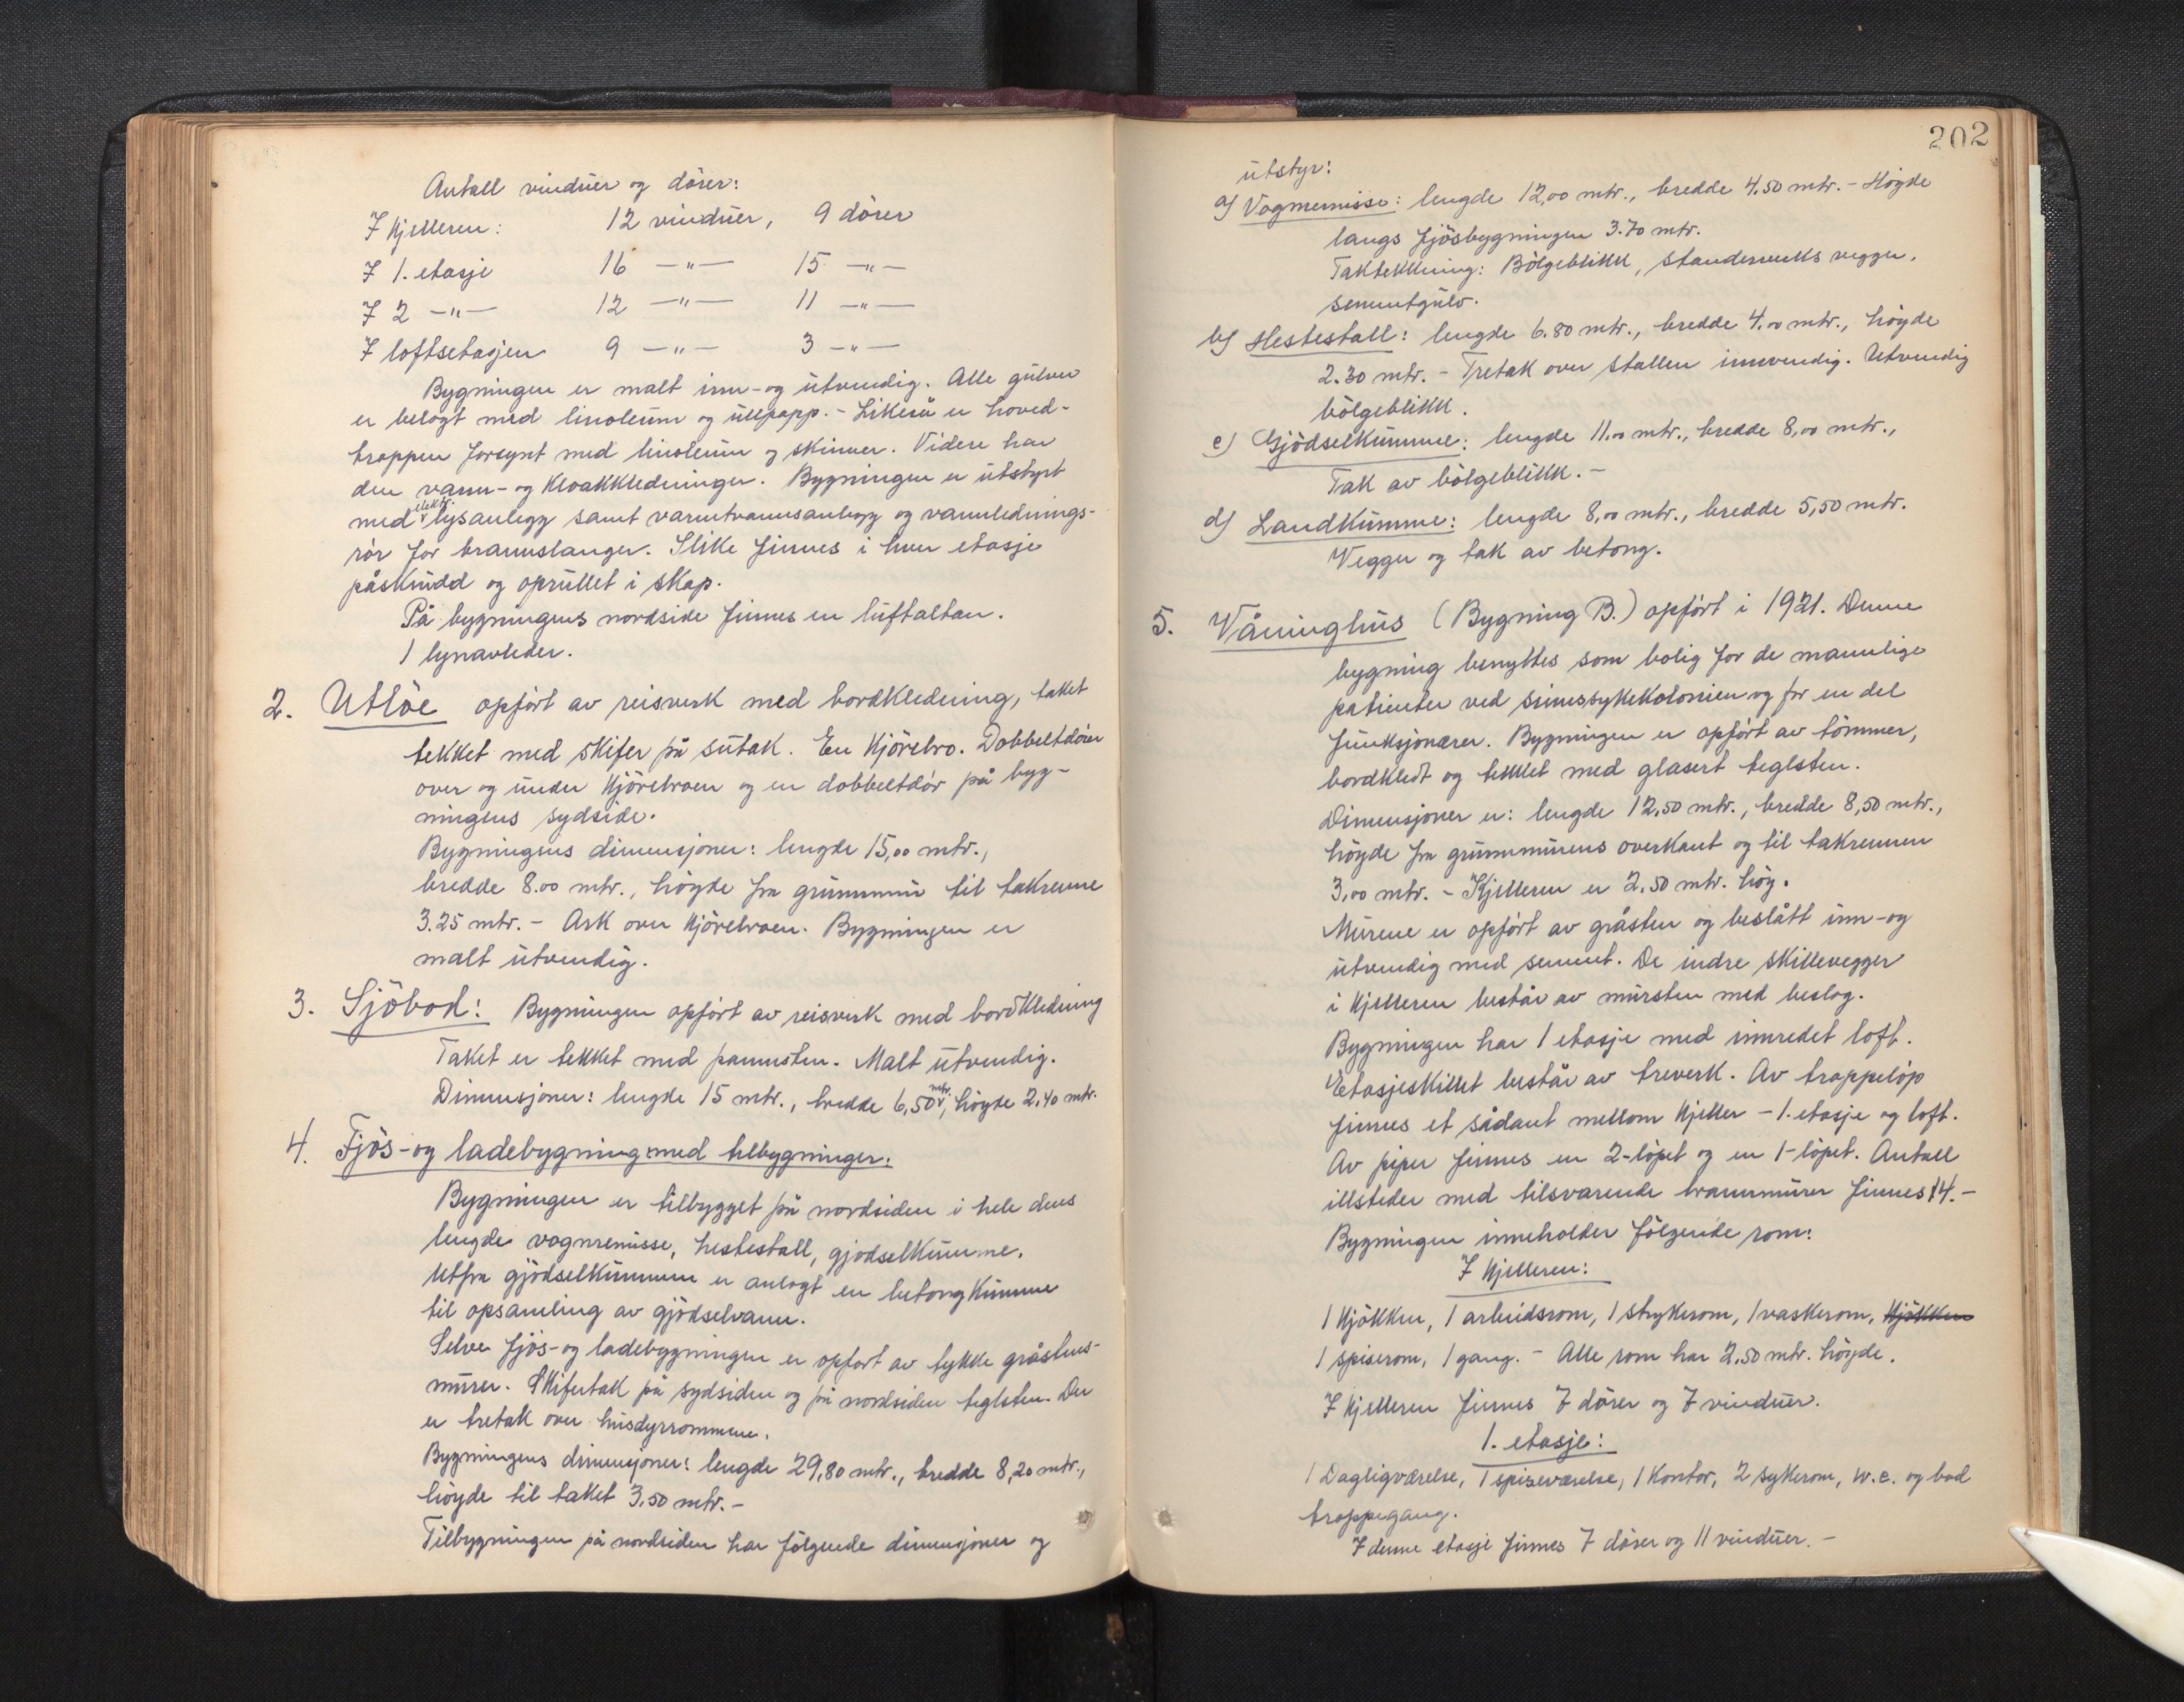 Antall vinduer og dörer:
I Kjelleren: 12 vinduer, 9 dörer
I 1. etasje 16 —"— 15 —"—
I 2 —"— 12 —"— 11 —"—
I loftsetasjen 9 —"— 3 —"—
Bygningen er malt inn- og utvendig. Alle gulver
er belagt med linoleum og ullpapp. - Likeså er hoved-
trappen forsynt med linoleum og skinner. Videre har
den vann- og kloakkledninger. Bygningen er utstyrt
med elektr. lysanlegg samt varmtvannsanlegg og vannlednings-
rör for brannslanger. Slike finnes i hver etasje
påskrudd og oprullet i skap.
På bygningens nordside finnes en luftaltan.
1 lynavleder.
2. Utlöe opfört av reisverk med bordkledning, taket
tekket med skifer på sutak. En kjörebro. Dobbeltdörer
over og under kjörebroen og en dobbeltdör på byg-
ningens sydside.
Bygningens dimensjoner: lengde 15,00 mtr.,
bredde 8.00 mtr., höyde fra grunnmur til takrenne
3.25 mtr. - Ark over kjörebroen. Bygningen er
malt utvendig.
3. Sjöbod: Bygningen opfört av reisverk med bordkledning
Taket er tekket med pannesten. Malt utvendig.
Dimensjoner: lengde 15 mtr., bredde 6,50 mtr., höyde 2,40 mtr.
4. Fjös- og ladebygning med tilbygninger:
Bygningen er tilbygget på nordsiden i hele dens
lengde vognremisse, hestestall, gjödselkumme.
Utfra gjödselkummen er anlagt en betongkumme
til opsamling av gjödselvann.
Selve fjös- og ladebygningen er opfört av tykke gråstens-
murer. Skifertak på sydsiden og på nordsiden teglsten. Der
er tretak over husdyrrommene.
Bygningens dimensjoner: lengde 29,80 mtr., bredde 8,20 mtr.,
höyde til taket 3,50 mtr. -
Tilbygningen på nordsiden har fölgende dimensjoner og
202
utstyr:
a) Vognremisse: lengde 12,00 mtr., bredde 4.50 mtr. - Höyde
langs fjösbygningen 3.70 mtr.
Taktekkning: Bölgeblikk, standerverks vegger,
sementgulv.
b) Hestestall: lengde 6.80 mtr., bredde 4.00 mtr., höyde
2.30 mtr. - Tretak over stallen innvendig. Utvendig
bölgeblikk.
c) Gjödselkumme: lengde 11.00 mtr., bredde 8,00 mtr.,
Tak av bölgeblikk. -
d) Landkumme: lengde 8,00 mtr., bredde 5,50 mtr.
Vegger og tak av betong.
5. Våninghus (Bygning B.) opfört i 1921. Denne
bygning benyttes som bolig for de mannlige
patienter ved sinnssykekolonien og for en del
funksjonærer. Bygningen er opfört av tömmer,
bordkledt og tekket med glasert teglsten.
Dimensjoner er: lengde 12,50 mtr., bredde 8,50 mtr.,
höyde fra grunnmurens overkant og til takrennen
3,00 mtr. - Kjelleren er 2,50 mtr. höy.
Murene er opfört av gråsten og beslått inn- og
utvendig med sement. De indre skillevegger
i kjelleren består av mursten med beslag.
Bygningen har 1 etasje med innredet loft.
Etasjeskillet består av treverk. Av trappelöp
finnes et sådant mellom kjeller - 1. etasje og loft.
Av piper finnes en 2-löpet og en 1-löpet. Antall
illsteder med tilsvarende brannmurer finnes 14. -
Bygningen inneholder fölgende rom:
I kjelleren:
1 Kjökken, 1 arbeidsrom, 1 strykerom, 1 vaskerom, kjökken
1 spiserom, 1 gang. - Alle rom har 2,50 mtr. höyde.
I kjelleren finnes 7 dörer og 7 vinduer.
1. etasje:
1 Dagligværelse, 1 spiseværelse, 1 Kontor, 2 sykerom, w.c. og bad
trappegang.
I denne etasje finnes 7 dörer og 11 vinduer. -